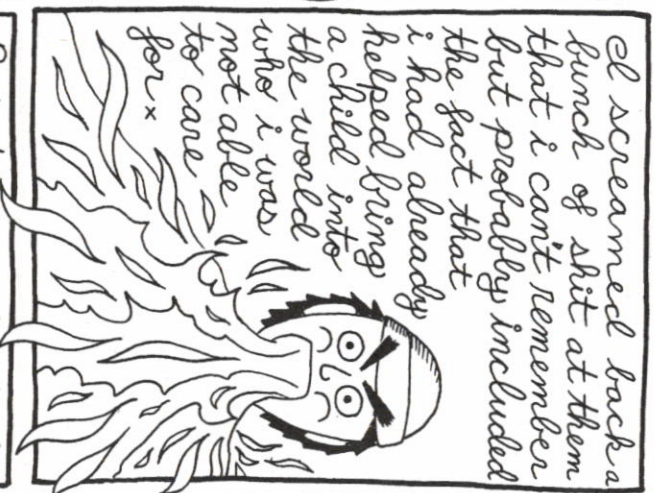 I screamed back a
bunch of shit at them
that i can't remember
but probably included
the fact that
i had already
helped bring
a child into
the world
who i was
not able
to care
for x